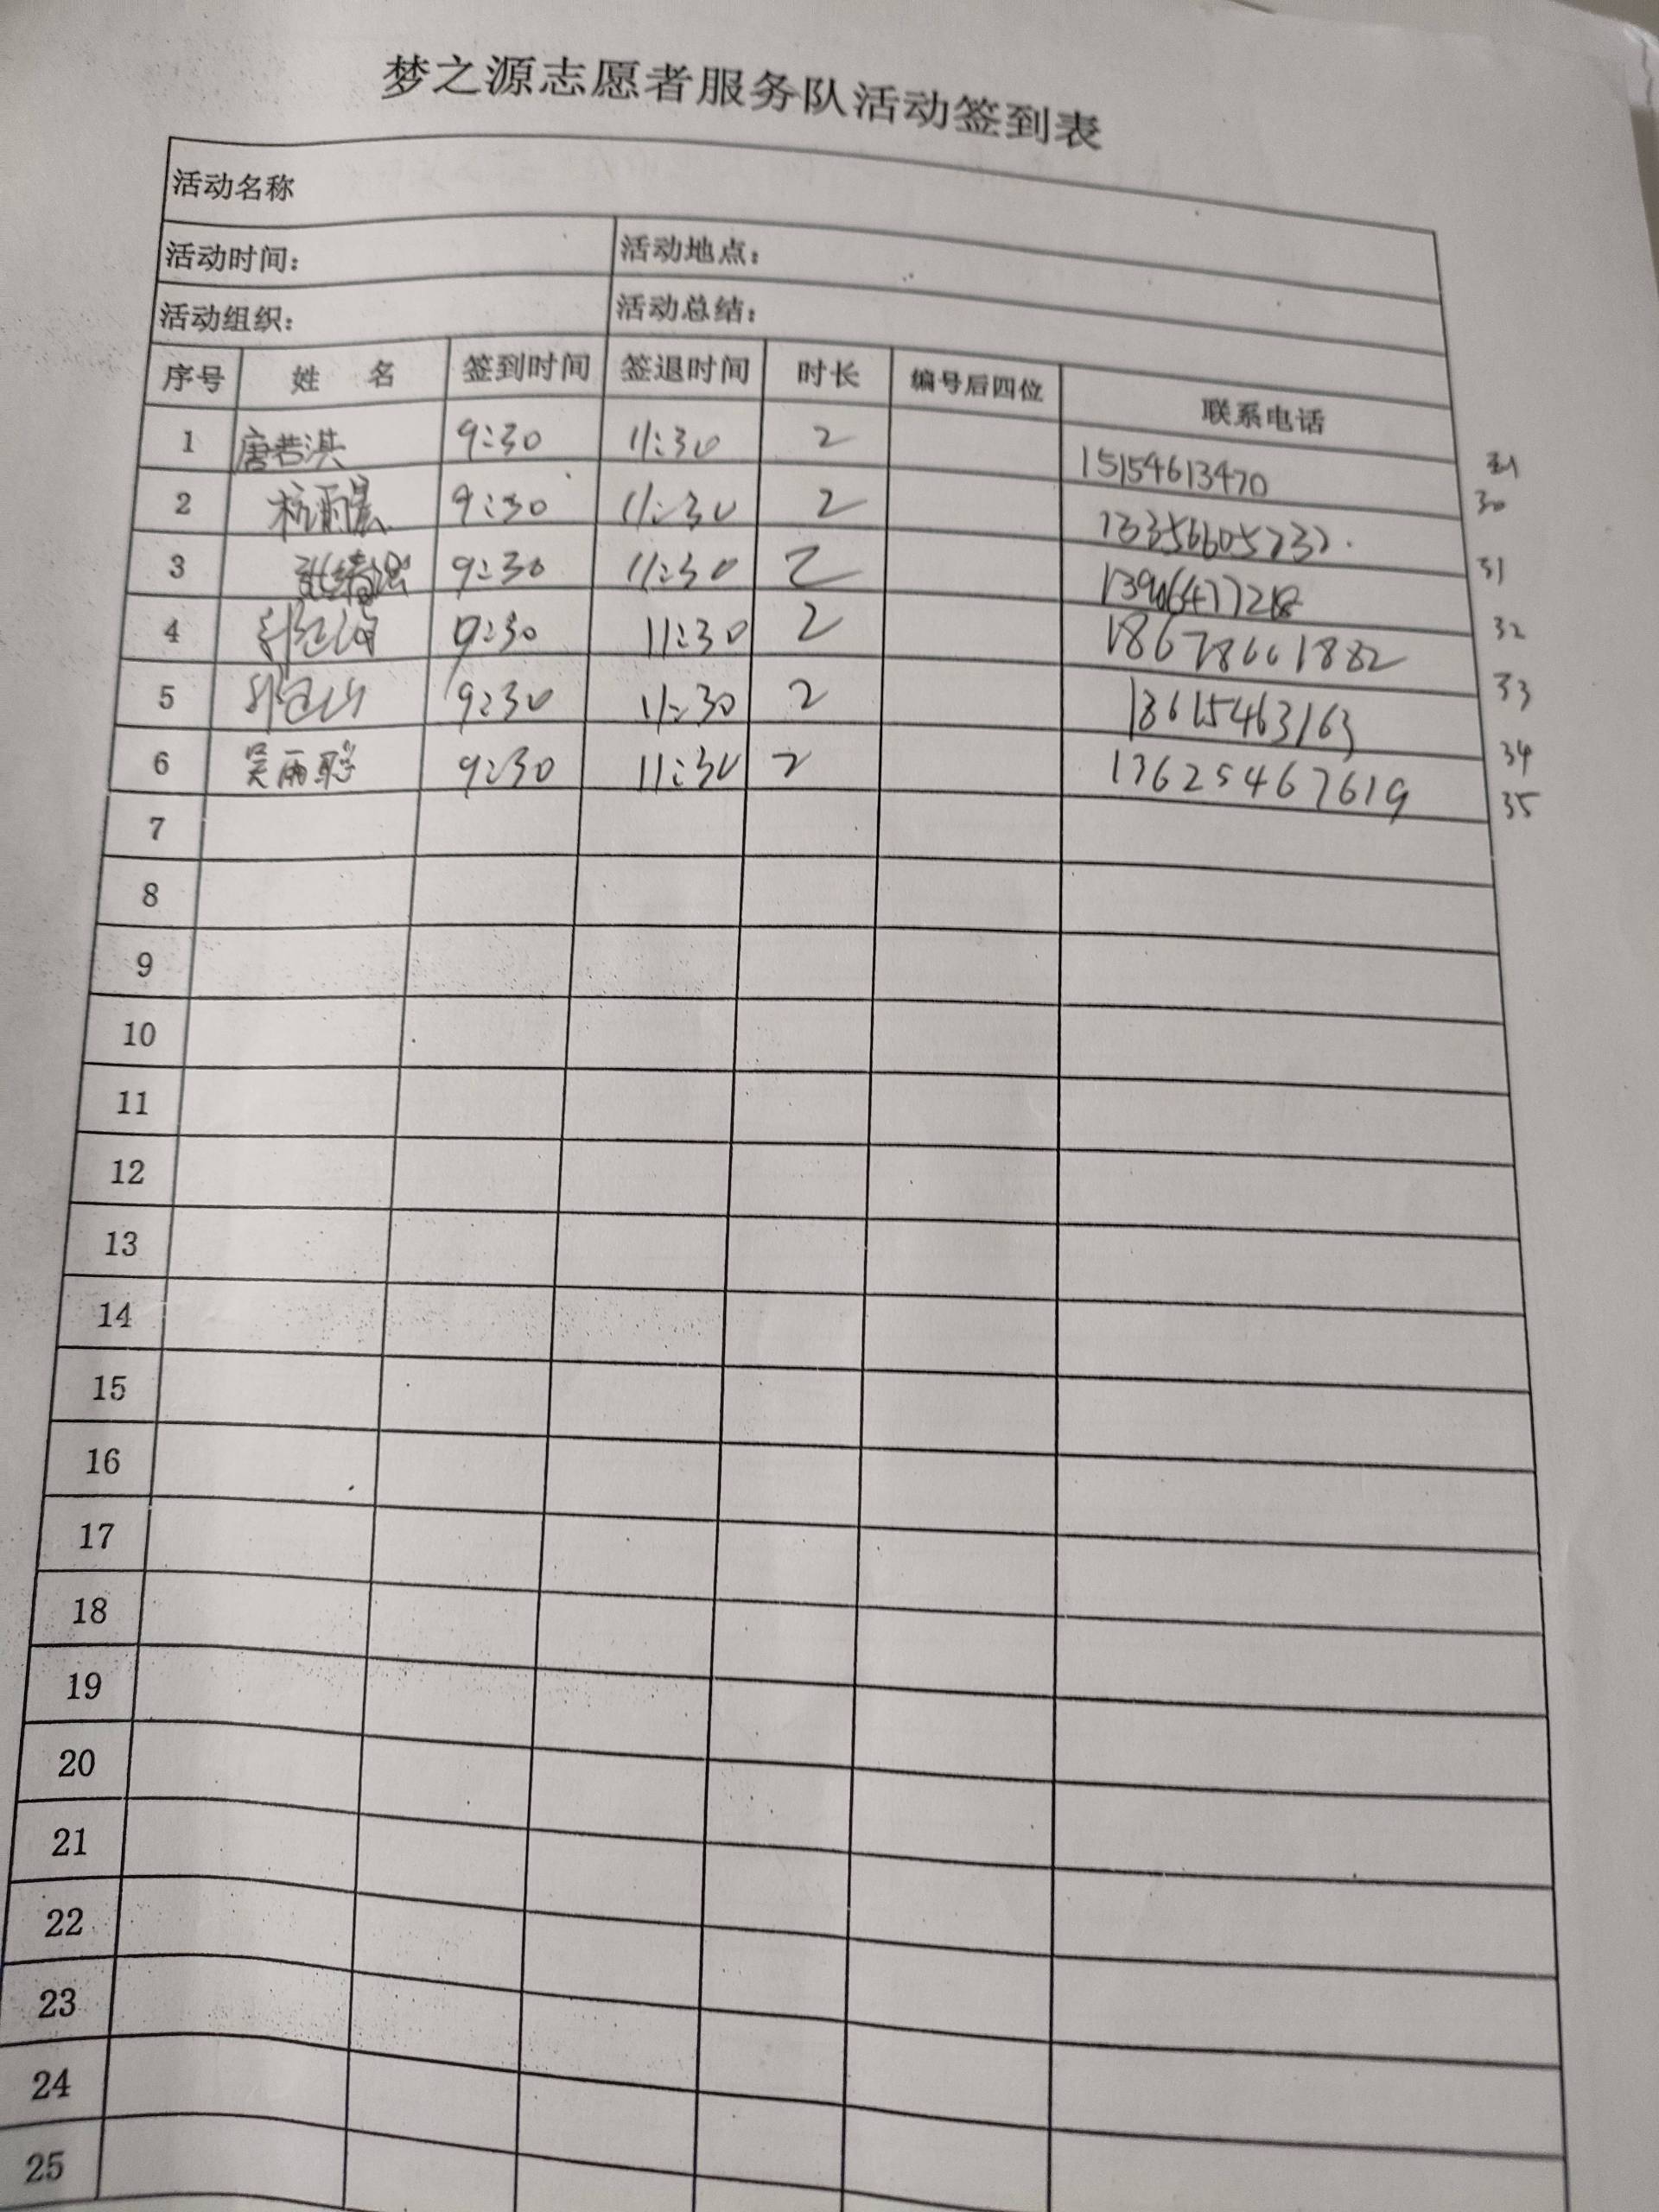 梦之源志愿者服务队活动签到表
活动名称
活动时间: 活动地点:
活动组织: 活动总结:
序号 姓 名 签到时间 签退时间 时长 编号后四位 联系电话
1 唐若淇 9:30 11:30 2 15154613470
2 9:30 11:30 2 30
3 9:30 11:30 2 31
4 9:30 11:30 2 18678661882 32
5 9:30 11:30 2 18615463163 33
6 吴雨聪 9:30 11:30 2 13625467619 34
7 35
8
9
10
11
12
13
14
15
16
17
18
19
20
21
22
23
24
25